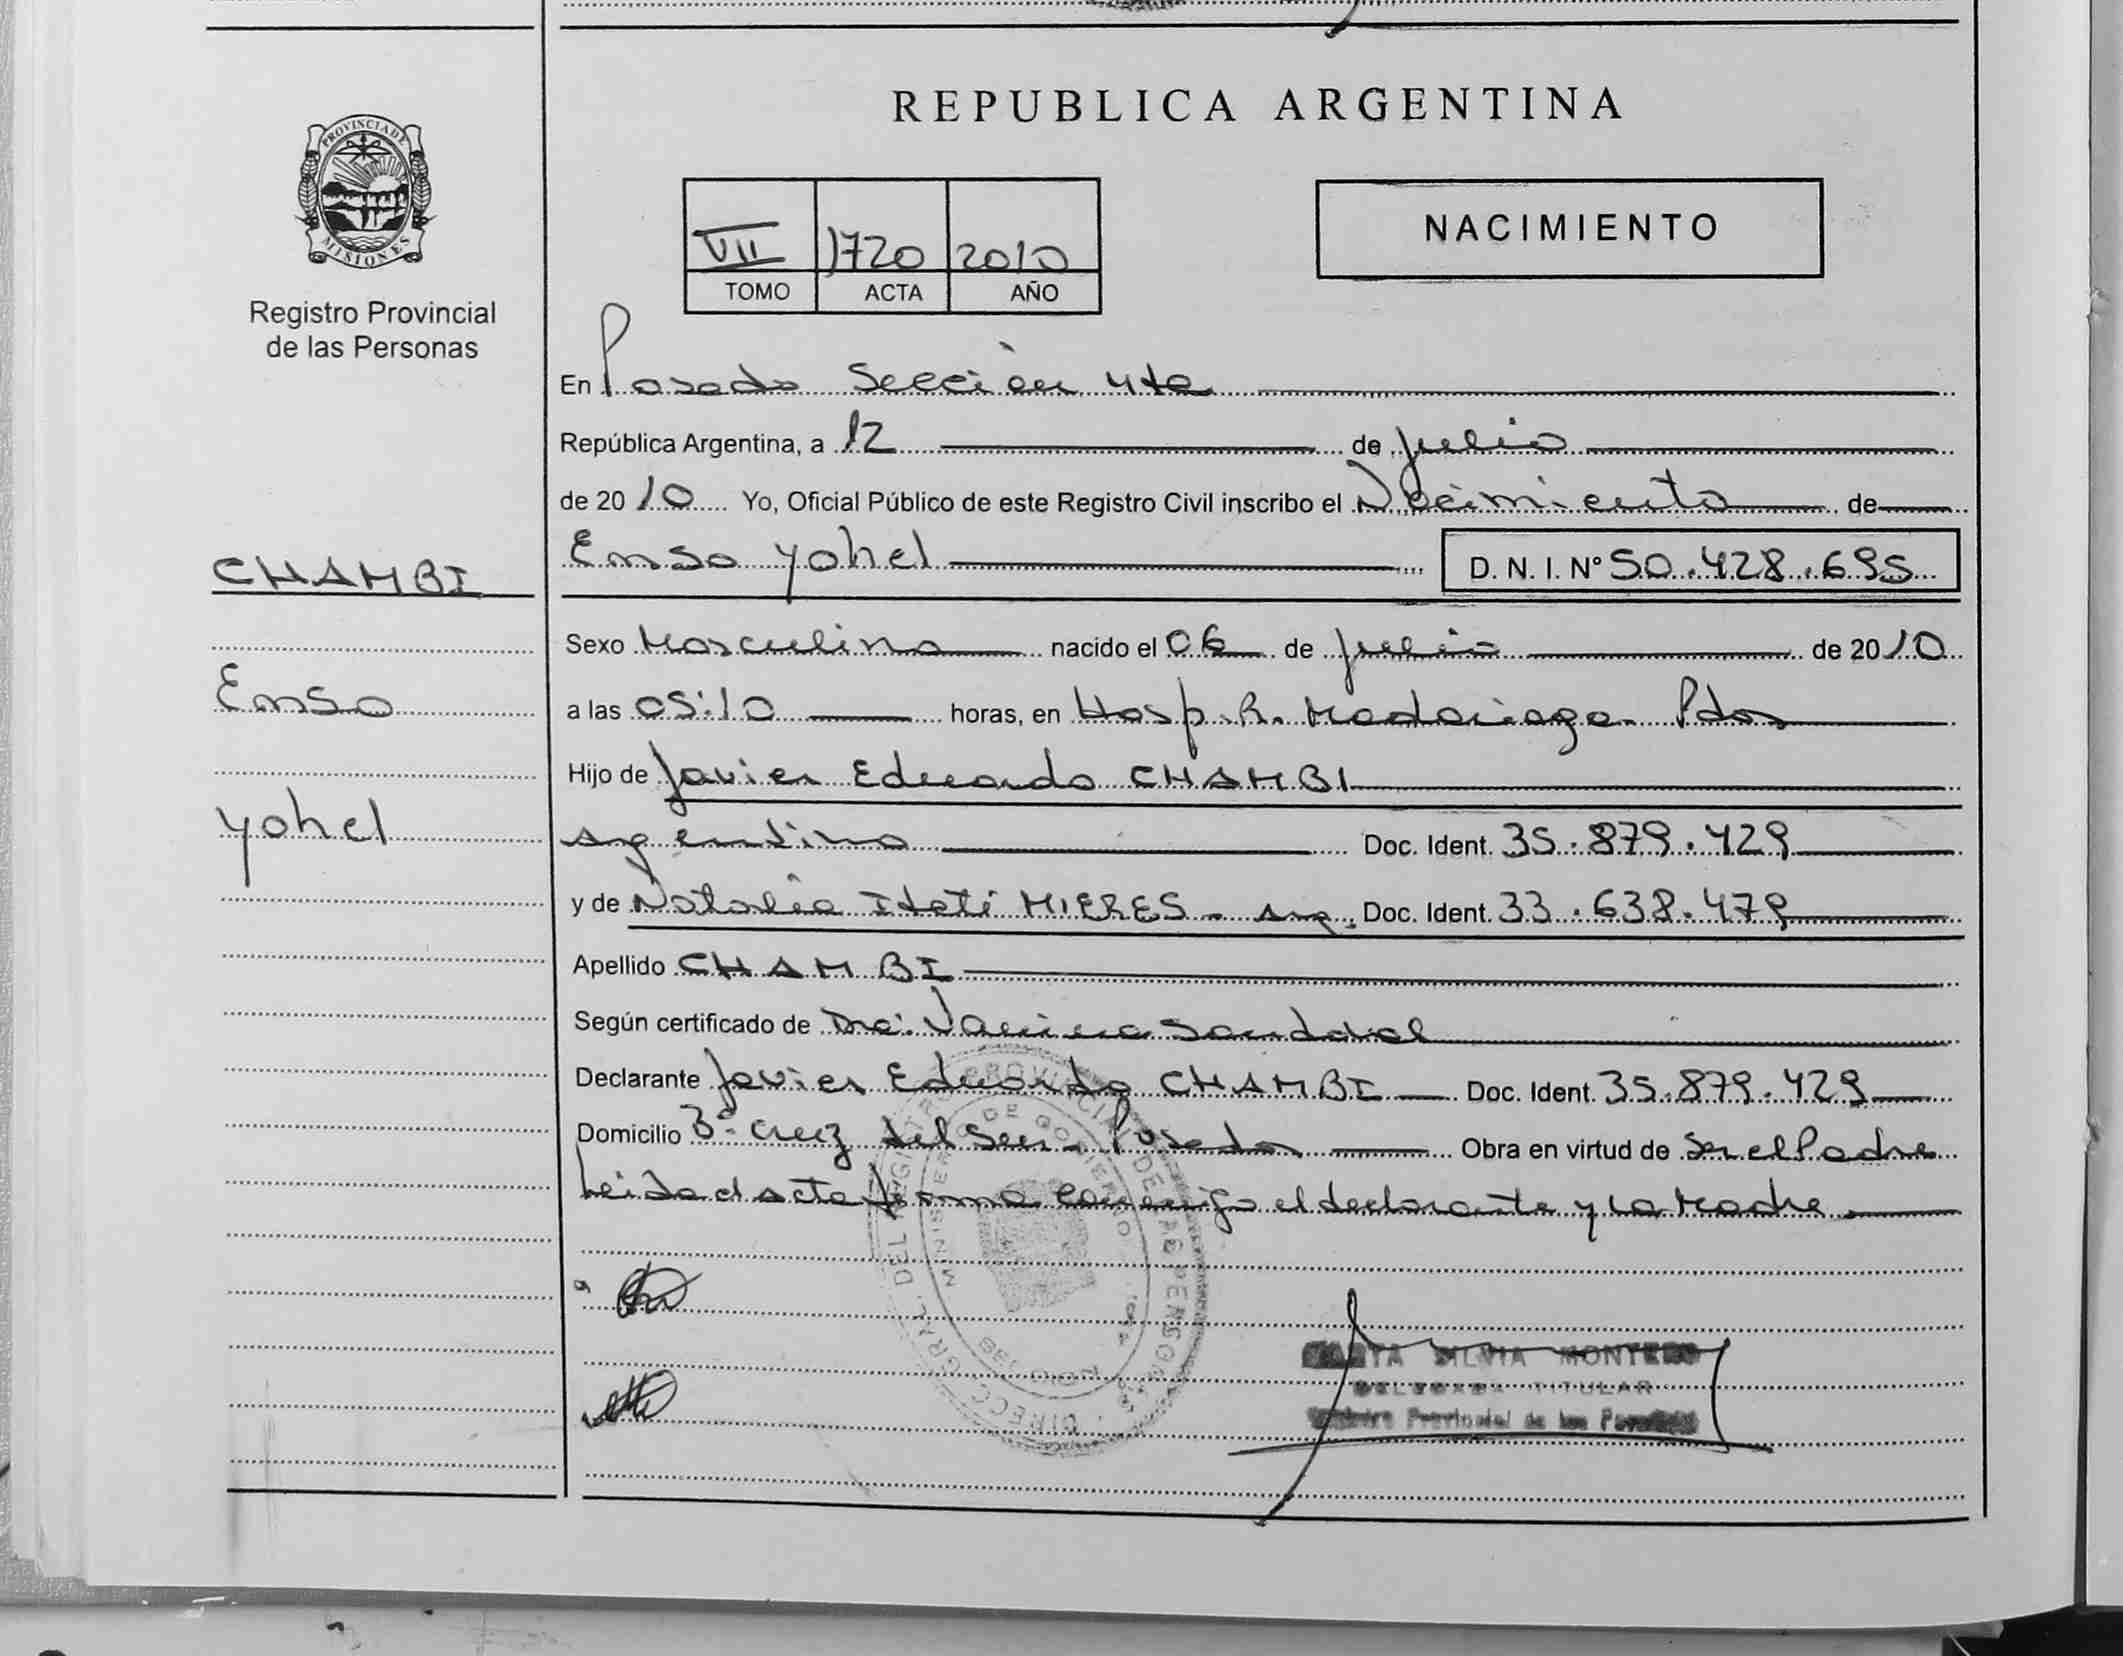 REPUBLICA ARGENTINA
PROVINCIA DE MISIONES
Registro Provincial
de las Personas
VII 1720 2010
TOMO ACTA AÑO
NACIMIENTO
En Posadas Sección 4ta
República Argentina, a 12 de julio
de 2010 Yo, Oficial Público de este Registro Civil inscribo el Nacimiento de
CHAMBI
Enso Yohel D. N. I. Nº 50.428.695
Sexo Masculino nacido el 06 de julio de 2010
Enso
a las 05:10 horas, en Hosp. R. Madariaga Pdas
Hijo de Javier Eduardo CHAMBI
Yohel
argentino Doc. Ident. 35.879.429
y de Natalia Itatí MIERES - arg. Doc. Ident. 33.638.479
Apellido CHAMBI
Según certificado de Dra. Sandoval
Declarante Javier Eduardo CHAMBI Doc. Ident. 35.879.429
Domicilio Bº Cruz del Sur - Posadas Obra en virtud de Ser el Padre
Leida el acta firma conmigo el declarante y la Madre
DIRECC. GRAL. DEL REGISTRO PROVINCIAL DE LAS PERSONAS
MINISTERIO DE GOBIERNO
SILVIA MONTERO
TITULAR
Provincial de las Personas